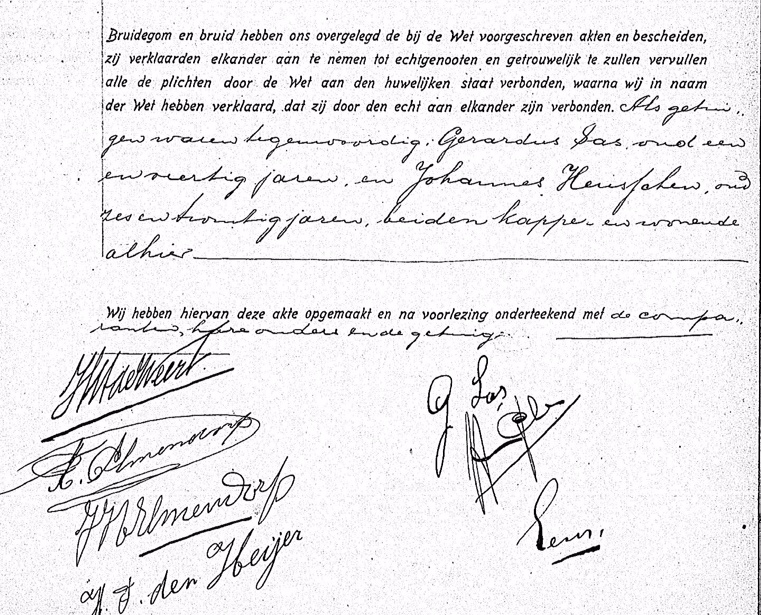 Bruidegom en bruid hebben ons overgelegd de bij de Wet voorgeschreven akten en bescheiden,
zij verklaarden elkander aan te nemen tot echtgenooten en getrouwelijk te zullen vervullen
alle de plichten door de Wet aan den huwelijken staat verbonden, waarna wij in naam
der Wet hebben verklaard, dat zij door den echt aan elkander zijn verbonden. Als getui„
gen waren tegenwoordig: Gerardus Sas, oud een
en veertig jaren, en Johannes, oud
zes en twintig jaren, beiden kapper en wonende
alhier
Wij hebben hiervan deze akte opgemaakt en na voorlezing onderteekend met de compa„
ranten, hare ouders en de getuigen.
G Sas
Almendorp
Almendorp
den Heijer